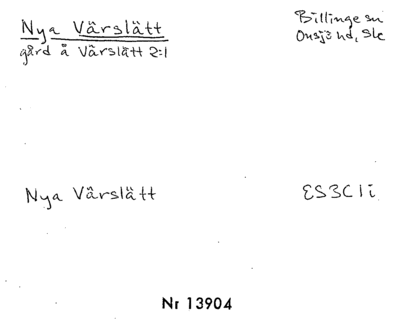 Nya Vårslätt
gård å Vårslätt 2:1
Billinge sn
Onsjö hd, Ske
Nya Vårslätt
ES3C1i
Nr 13904